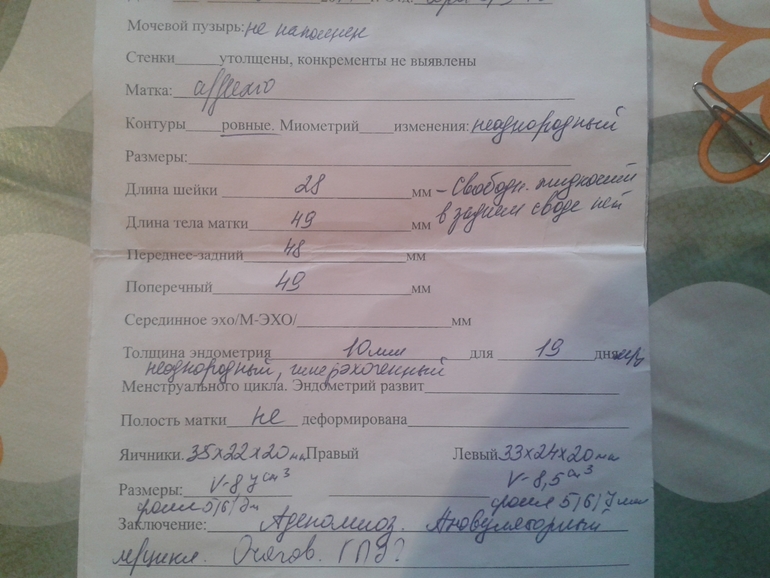 Мочевой пузырь: не наполнен
Стенки______утолщены, конкременты не выявлены
Матка: аффлехо
Контуры____ровные. Миометрий____изменения: неоднородный
Размеры:
Длина шейки 28 мм – Свободн. жидкости
Длина тела матки 49 мм в заднем своде нет
Переднее-задний 48 мм
Поперечный 49 мм
Серединное эхо/М-ЭХО/ мм
Толщина эндометрия 10 мм для 19 дня
неоднородный, гиперэхогенный
Менструального цикла. Эндометрий развит
Полость матки не деформирована
Яичники. 35х22х20 мм Правый Левый 33х24х20 мм
Размеры: V-8, см³ V-8,5 см³
фолл 5/6/7 мм фолл 5/6/7 мм
Заключение: Аденомиоз. Ановуляторный
м/цикл. Очагов. ГПЭ?